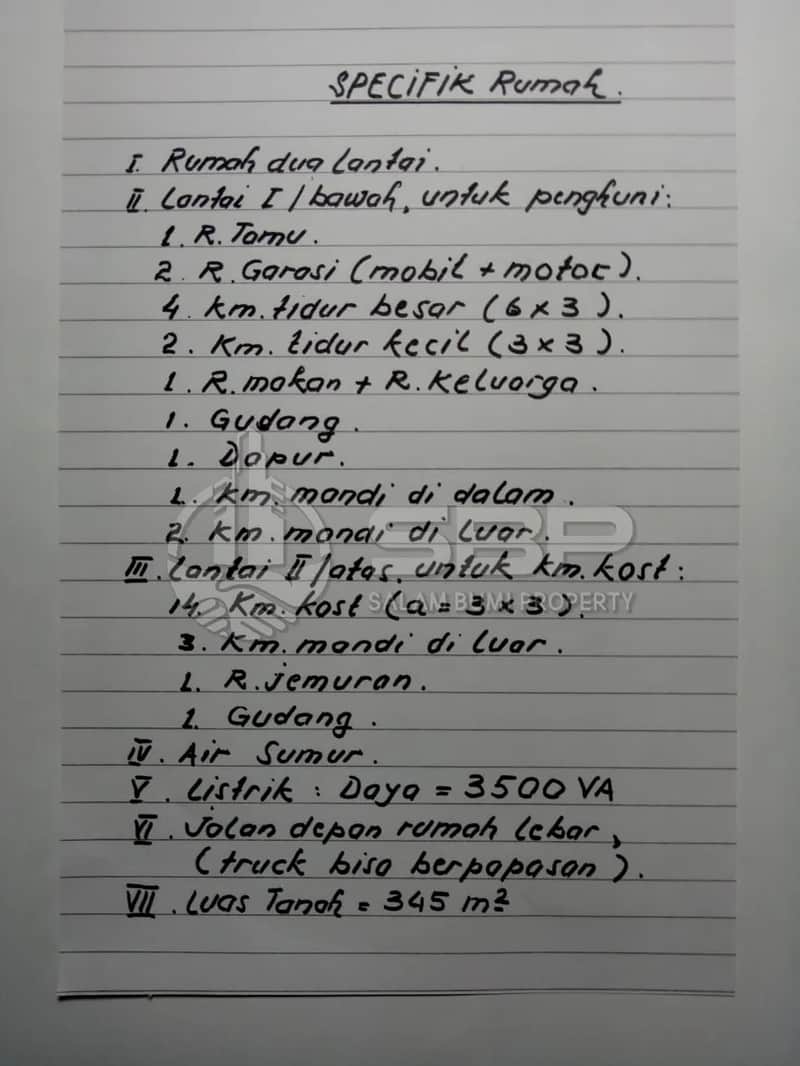 SPECIFIK Rumah.
I. Rumah dua Lantai.
II. Lantai I / bawah, untuk penghuni:
1. R. Tamu.
2 R. Garasi (mobil + motor).
4. Km. tidur besar (6 x 3).
2. Km. tidur kecil (3 x 3).
1. R. makan + R. Keluarga.
1. Gudang.
1. Dapur.
1. Km. mandi di dalam.
2. Km. mandi di Luar.
III. Lantai II / atas, untuk km. kost:
14. Km. kost (a = 3 x 3).
3. Km. mandi di Luar.
1. R. Jemuran.
1. Gudang.
IV. Air Sumur.
V. Listrik : Daya = 3500 VA
VI. Jalan depan rumah lebar,
(truck bisa berpapasan).
VII. Luas Tanah = 345 m²
SBP
SALAM BUMI PROPERTY